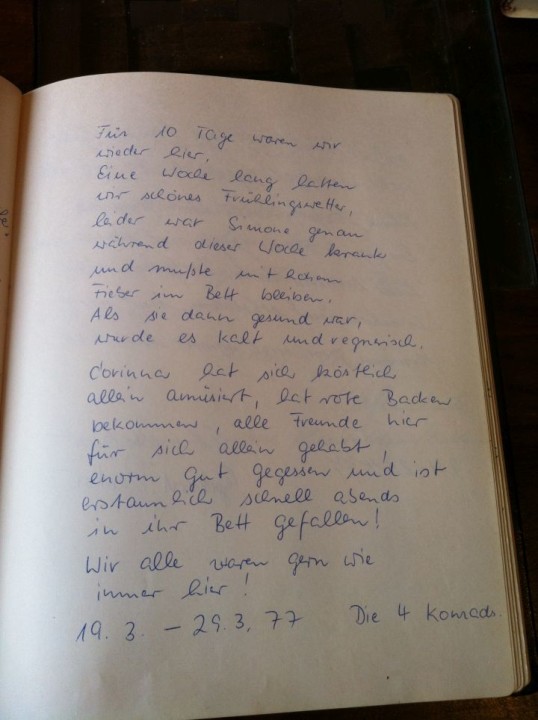 Für 10 Tage waren wir
wieder hier.
Eine Woche lang hatten
wir schönes Frühlingswetter,
leider war Simone genau
während dieser Woche krank
und mußte mit hohem
Fieber im Bett bleiben.
Als sie dann gesund war,
wurde es kalt und regnerisch.
Corinna hat sich köstlich
allein amüsiert, hat rote Backen
bekommen, alle Freunde hier
für sich allein gehabt,
enorm gut gegessen und ist
erstaunlich schnell abends
in ihr Bett gefallen!
Wir alle waren gern wie
immer hier!
19. 3. – 29. 3. 77 Die 4 Konrads.